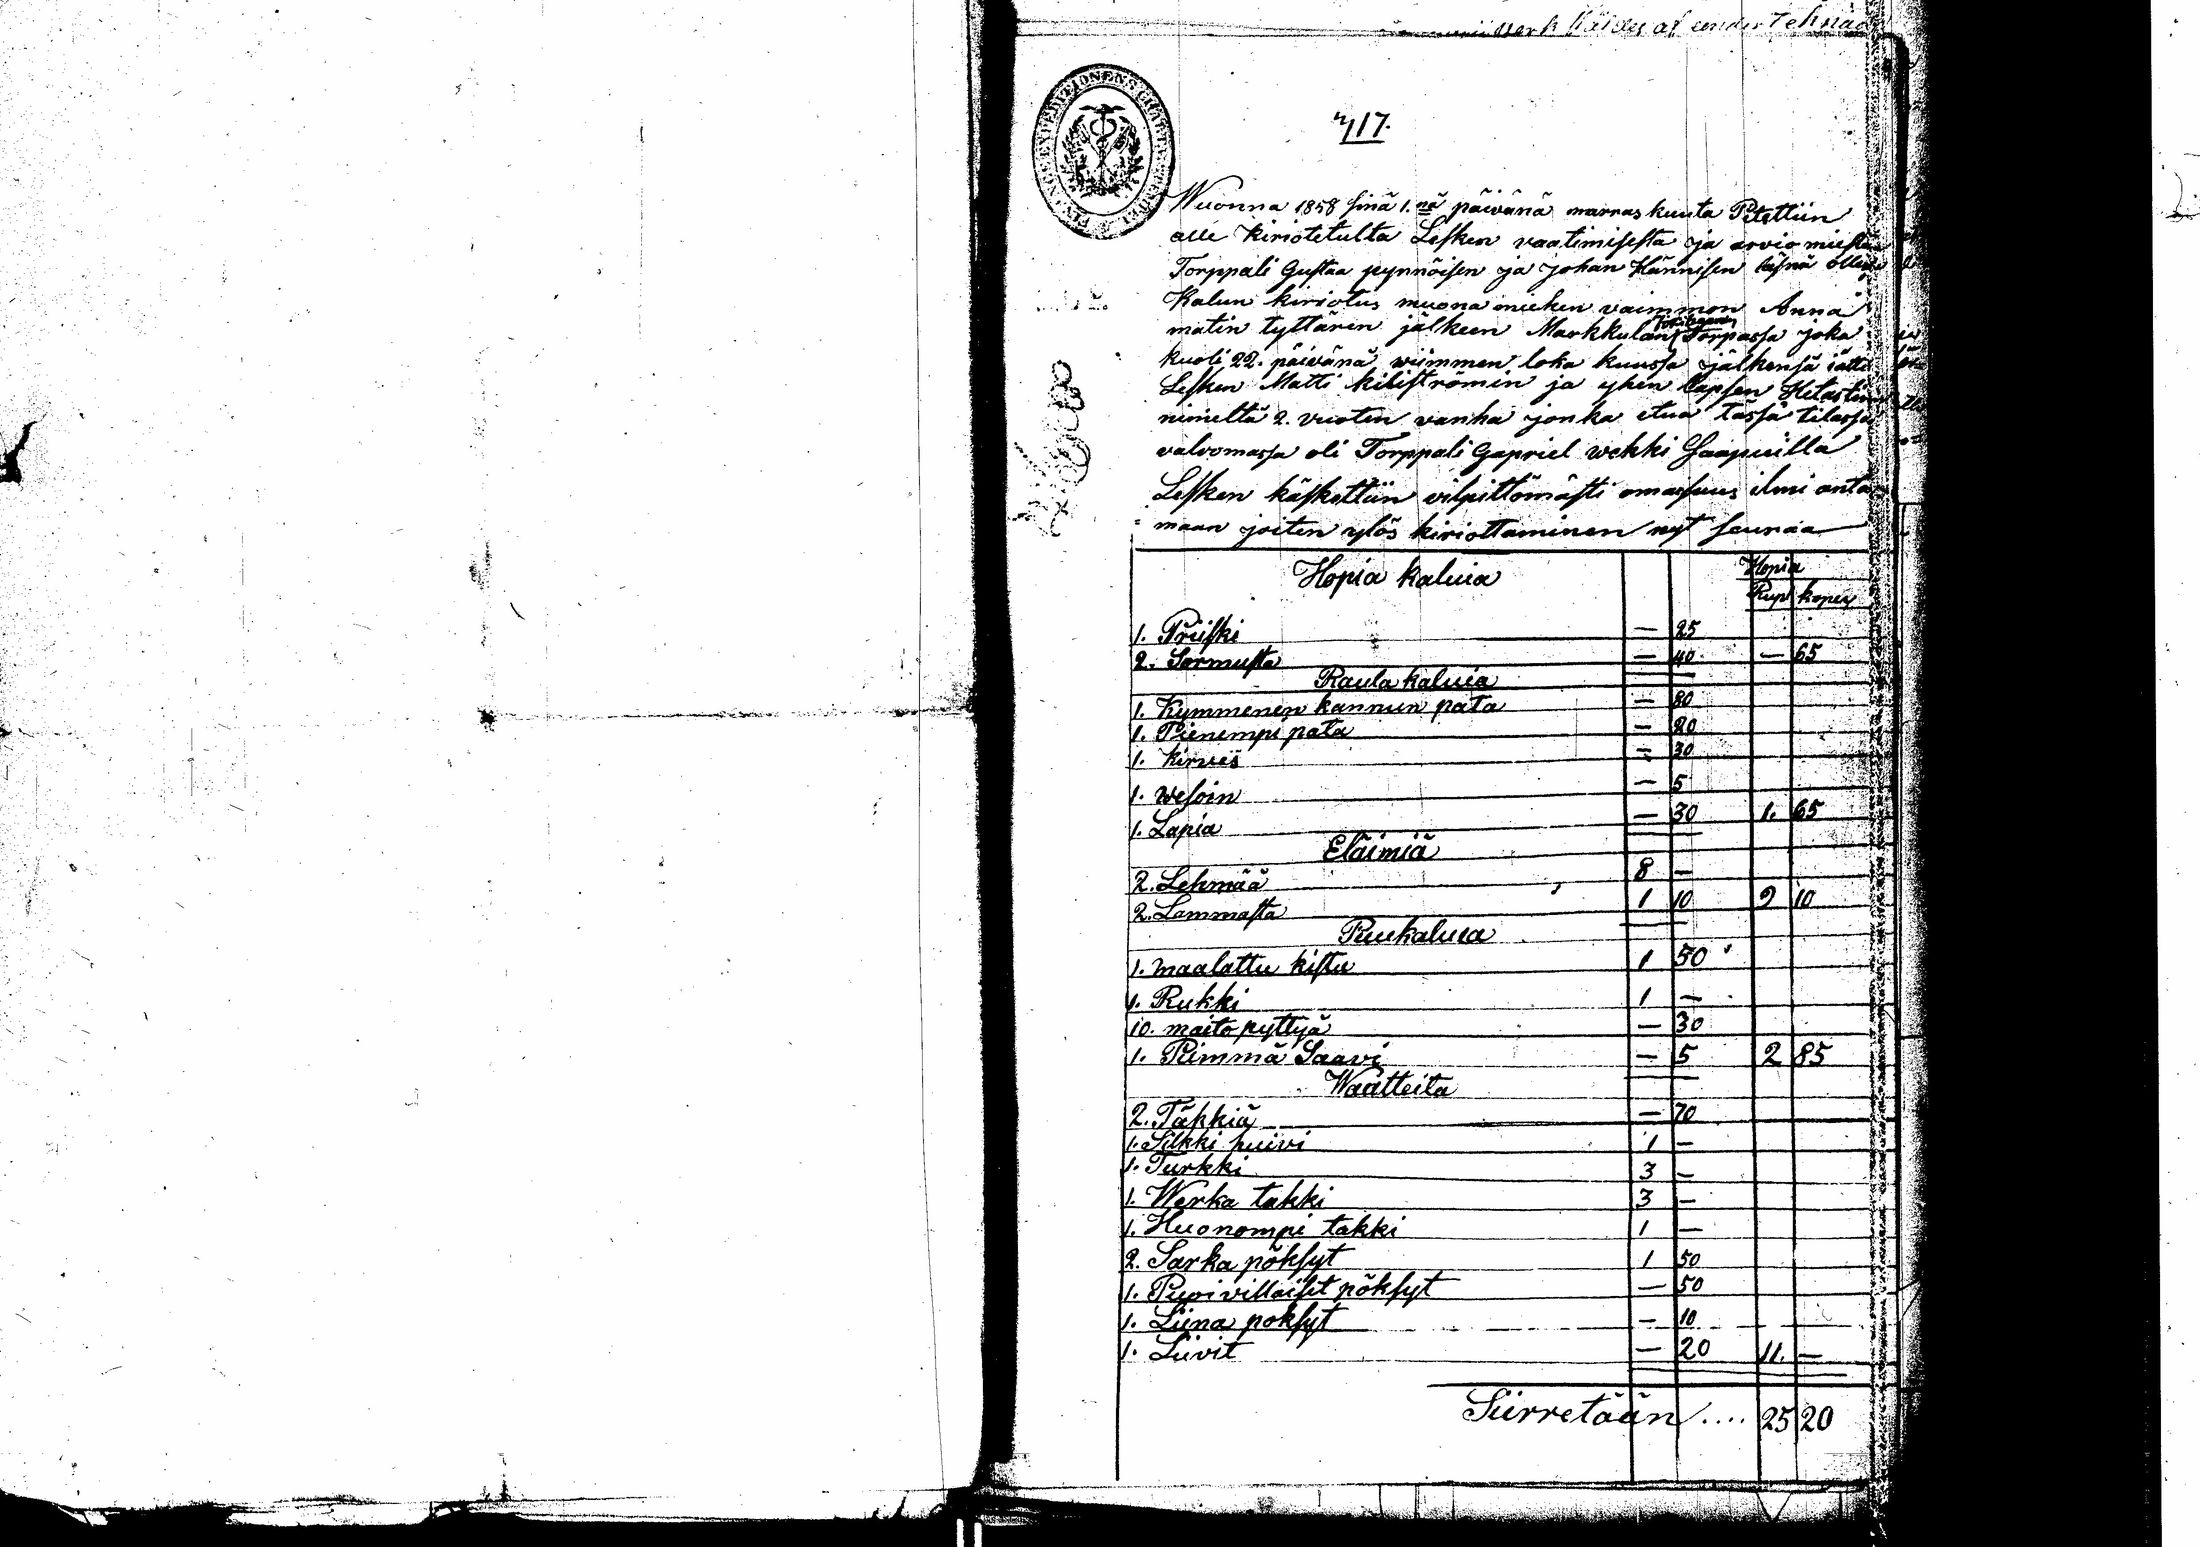 af under Teknad
17.
Wuonna 1858 sinä 1.nä päivänä marras kuuta Pitettiin
alle kiriotetulta Lesken vaatimisesta ja arvio miesten
Torppali Gustaa pynnöisen ja Johan Hännisen läsnä ollesa
Kalun kiriotus muona miehen vaimmon Anna
matin tyttären jälkeen Markkulan Torpassa joka
kuoli 22. päivänä viimmen loka kuussa jälkensä jätti
Lesken Matti kiliströmin ja yhen lapsen
nimeltä 2. vuoten vanha jonka etua tässä tilassa
valvomassa oli Torppali Gapriel wekki Haapuilla
Lesken käskettiin vilpittömästi omaisuus ilmi anta
maan joiten ylös kiriottaminen nyt seuraa
Hopia kaluia Hopia
Rup kopek
1. Priiski — 25
2. Sormusta — 40 — 65
Rauta kaluia
1. Kymmenen kannun pata — 80
1. Pienempi pata — 20
1. Kirves — 30
1. wesoin — 5
1. Lapia — 30 1. 65
Eläimiä
2. Lehmää 8 —
2. Lammasta 1 10 9 10
Puukaluia
1. maalattu kistu 1 50
1. Rukki 1 —
10. maito pyttyä — 30
1. Piimmä Saavi — 5 2 85
Waatteita
2. Täkkiä — 70
1. Silkki huivi 1 —
1. Turkki 3 —
1. Werka takki 3 —
1. Huonompi takki 1 —
2. Sarka pöksyt 1 50
1. Pupivillaiset pöksyt — 50
1. Liina poksyt — 10
1. Liivit — 20 11. —
Siirretään .... 25 20